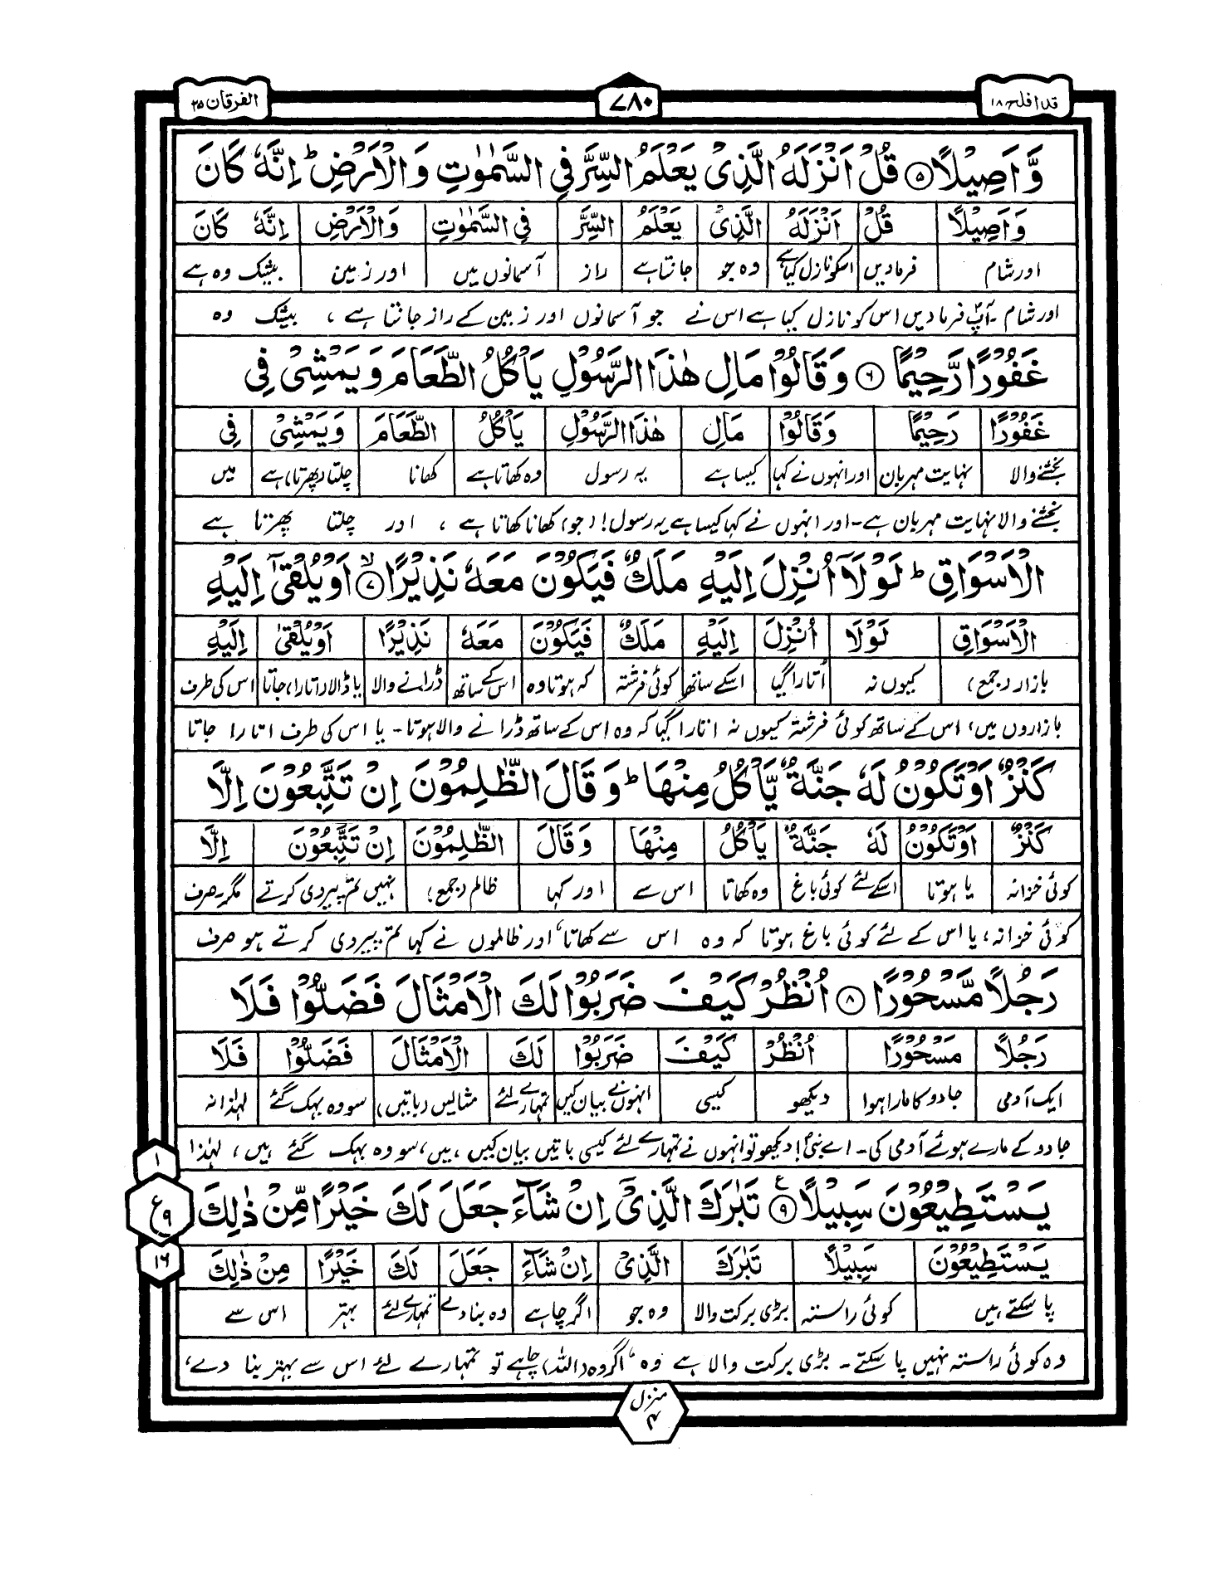 قد افلح ١٨
٧٨٠
الفرقان ٢٥
وَّاَصِیْلًا ۵ قُلْ اَنْزَلَهُ الَّذِیْ یَعْلَمُ السِّرَّ فِی السَّمٰوٰتِ وَالْاَرْضِ ؕ اِنَّهٗ کَانَ
وَاَصِیْلًا قُلْ اَنْزَلَهُ الَّذِیْ یَعْلَمُ السِّرَّ فِی السَّمٰوٰتِ وَالْاَرْضِ اِنَّهٗ کَانَ
اور شام فرمادیں اسکو نازل کیا ہے وہ جو جانتا ہے راز آسمانوں میں اور زمین بیشک وہ ہے
اور شام ۔ آپؐ فرمادیں اس کو نازل کیا ہے اس نے جو آسمانوں اور زمین کے راز جانتا ہے ، بیشک وہ
غَفُوْرًا رَّحِیْمًا ۶ وَقَالُوْا مَالِ هٰذَا الرَّسُوْلِ یَاْکُلُ الطَّعَامَ وَیَمْشِیْ فِی
غَفُوْرًا رَحِیْمًا وَقَالُوْا مَالِ هٰذَا الرَّسُوْلِ یَاْکُلُ الطَّعَامَ وَیَمْشِیْ فِی
بخشنے والا نہایت مہربان اور انہوں نے کہا کیسا ہے یہ رسول وہ کھاتا ہے کھانا چلتا (پھرتا) ہے میں
بخشنے والا نہایت مہربان ہے ۔ اور انہوں نے کہا کیسا ہے یہ رسول! (جو) کھانا کھاتا ہے ، اور چلتا پھرتا ہے
الْاَسْوَاقِ ؕ لَوْلَاۤ اُنْزِلَ اِلَیْهِ مَلَکٌ فَیَکُوْنَ مَعَهٗ نَذِیْرًا ۙ۷ اَوْ یُلْقٰۤی اِلَیْهِ
الْاَسْوَاقِ لَوْلَا اُنْزِلَ اِلَیْهِ مَلَکٌ فَیَکُوْنَ مَعَهٗ نَذِیْرًا اَوْ یُلْقٰۤی اِلَیْهِ
بازار (جمع) کیوں نہ اُتارا گیا اسکے ساتھ کوئی فرشتہ کہ ہوتا وہ اس کے ساتھ ڈرانے والا یا ڈالا (اتارا) جاتا اس کی طرف
بازاروں میں، اس کے ساتھ کوئی فرشتہ کیوں نہ اتارا گیا کہ وہ اس کے ساتھ ڈرانے والا ہوتا ۔ یا اس کی طرف اتارا جاتا
کَنْزٌ اَوْ تَکُوْنُ لَهٗ جَنَّةٌ یَّاْکُلُ مِنْهَا ؕ وَقَالَ الظّٰلِمُوْنَ اِنْ تَتَّبِعُوْنَ اِلَّا
کَنْزٌ اَوْ تَکُوْنُ لَهٗ جَنَّةٌ یَاْکُلُ مِنْهَا وَقَالَ الظّٰلِمُوْنَ اِنْ تَتَّبِعُوْنَ اِلَّا
کوئی خزانہ یا ہوتا اسکے لئے کوئی باغ وہ کھاتا اس سے اور کہا ظالم (جمع) نہیں تم پیروی کرتے مگر۔ صرف
کوئی خزانہ، یا اس کے لئے کوئی باغ ہوتا کہ وہ اس سے کھاتا، اور ظالموں نے کہا تم پیروی کرتے ہو صرف
رَجُلًا مَّسْحُوْرًا ۸ اُنْظُرْ کَیْفَ ضَرَبُوْا لَکَ الْاَمْثَالَ فَضَلُّوْا فَلَا
رَجُلًا مَسْحُوْرًا اُنْظُرْ کَیْفَ ضَرَبُوْا لَکَ الْاَمْثَالَ فَضَلُّوْا فَلَا
ایک آدمی جادو کا مارا ہوا دیکھو کیسی انہوں نے بیان کیں تمہارے لئے مثالیں (باتیں) سو وہ بہک گئے لہٰذا نہ
جادو کے مارے ہوئے آدمی کی ۔ اے نبیؐ! دیکھو تو انہوں نے تمہارے لئے کیسی باتیں بیان کیں ہیں، سو وہ بہک گئے ہیں ، لہٰذا
یَسْتَطِیْعُوْنَ سَبِیْلًا ۹ ع تَبٰرَکَ الَّذِیْۤ اِنْ شَآءَ جَعَلَ لَکَ خَیْرًا مِّنْ ذٰلِکَ
١
ع ٩
١٦
یَسْتَطِیْعُوْنَ سَبِیْلًا تَبٰرَکَ الَّذِیْۤ اِنْ شَآءَ جَعَلَ لَکَ خَیْرًا مِنْ ذٰلِکَ
پا سکتے ہیں کوئی راستہ بڑی برکت والا وہ جو اگر چاہے وہ بنا دے تمہارے لئے بہتر اس سے
وہ کوئی راستہ نہیں پا سکتے ۔ بڑی برکت والا ہے وہ، اگر وہ (اللہ) چاہے تو تمہارے لئے اس سے بہتر بنا دے،
منزل ۴